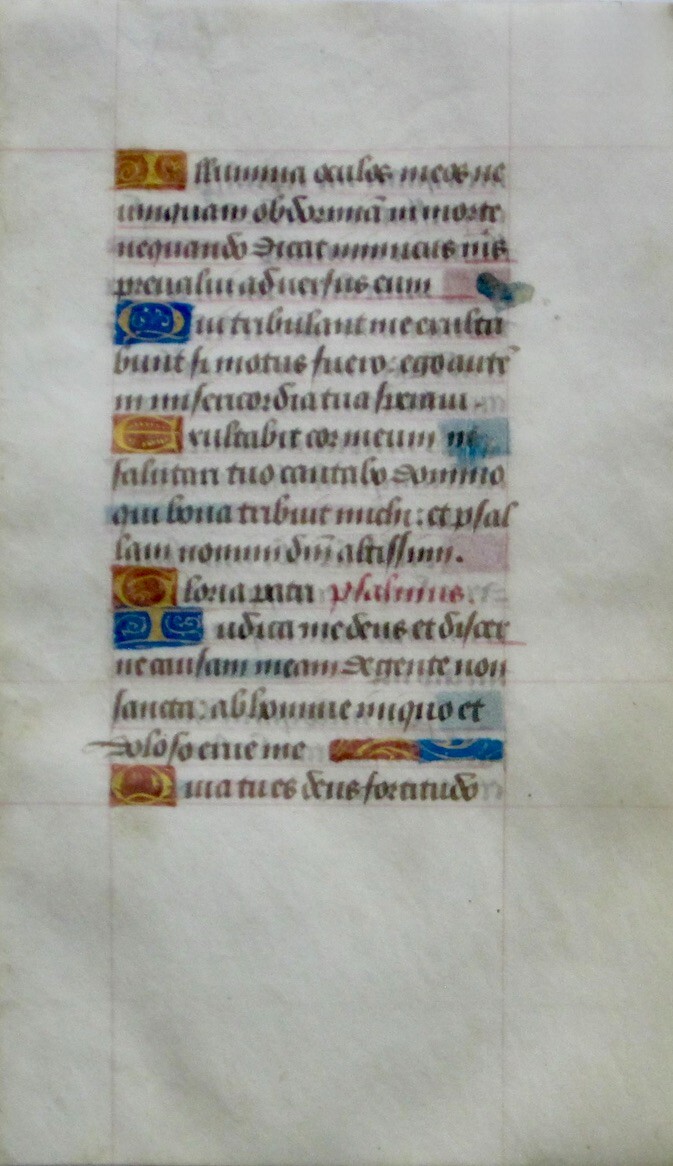 Illumina oculos meos ne
unquam obdormiā in morte
nequando dicat inimicus mīs
prevalui adversus eum
Qui tribulant me exulta
bunt si motus fuero: ego autē
in misericordia tua speravi.
Exultabit cor meum in
salutari tuo cantabo domino
qui bona tribuit michi: et psal
lam nomini dn̄i altissimi.
Gloria patri psalmus.
Iudica me deus et discer
ne causam meam de gente non
sancta: ab homine iniquo et
doloso erue me
Quia tu es deus fortitudo